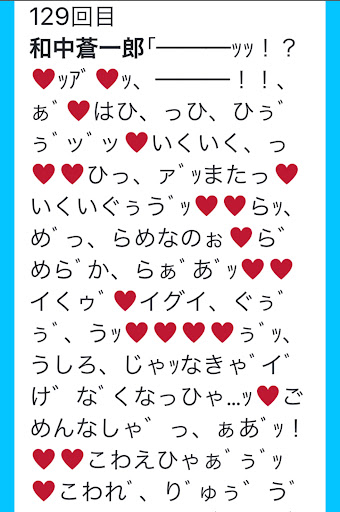 129回目
和中蒼一郎「————ｯｯ！？
♥ｯｱﾞ♥ｯ、————！！、
ぁﾞ♥はひ、っひ、ひぅﾞ
ぅﾞッﾞッ♥いくいく、っ
♥♥ひっ、ァﾞｯまたっ♥
いくいぐぅうﾞｯ♥♥らｯ、
めﾞっ、らめなのぉ♥らﾞ
めらﾞか、らぁﾞあﾞｯ♥♥
イくゥﾞ♥イグイ、ぐぅﾞ
ぅﾞ、うｯ♥♥♥♥ぅﾞｯ、
うしろ、じゃｯなきゃﾞイﾞ
けﾞ なﾞくなっひゃ…ｯ♥ご
めんなしゃﾞ っ、ぁあﾞｯ！
♥♥こわえひゃぁﾞぅﾞｯ
♥こわれﾞ、りﾞゅぅﾞ うﾞ